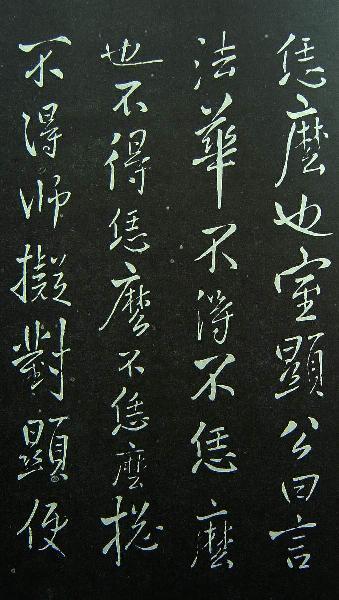 恁麼也室顯公曰言
法華不得不恁麼
也不得恁麼不恁麼揔
不得師擬對顯便